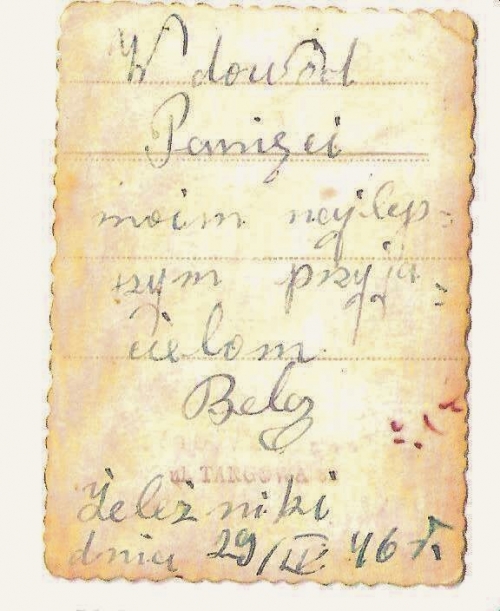 W dowód
Pamięci
moim najlep=
szym przyja=
cielom
Belcz
ul. TARGOWA
Żeleźniki
dnia 29/IV 46 r.